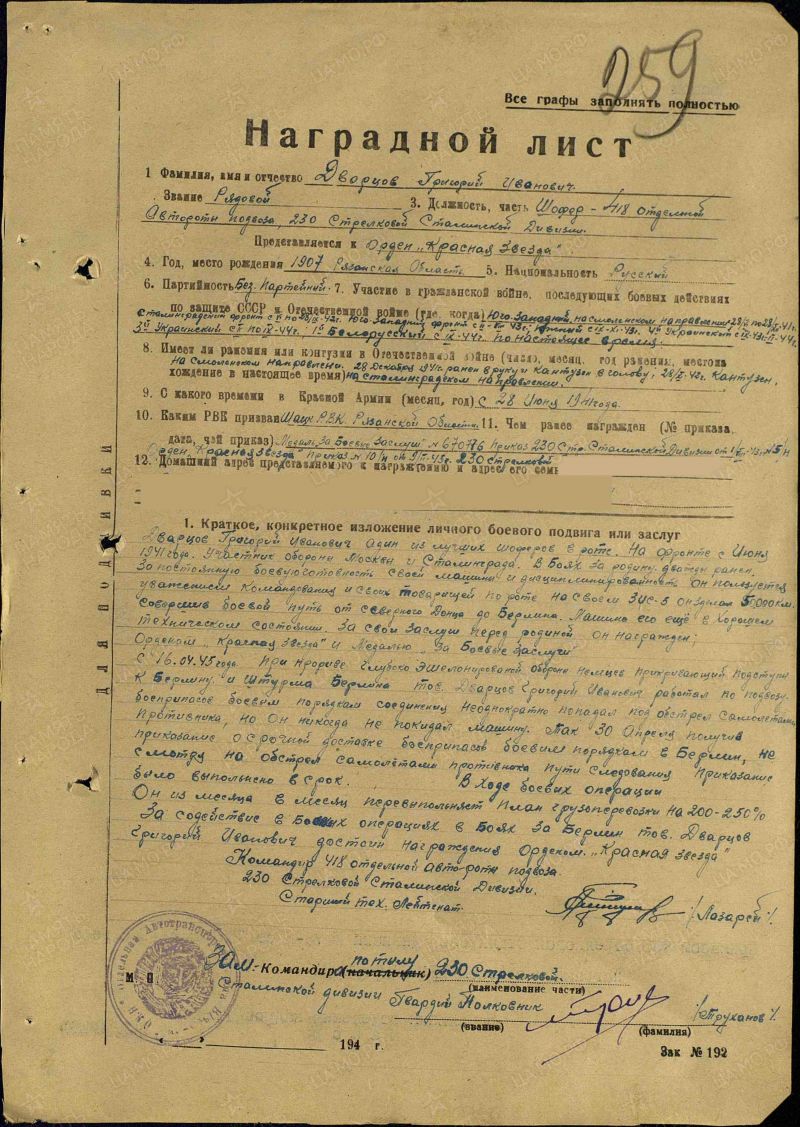 259
Все графы заполнять полностью
Наградной лист
1 Фамилия, имя и отчество Дварцов Григорий Иванович.
Звание Рядовой 3. Должность, часть Шофер - 418 отдельной
Автороты подвоза, 230 Стрелковой Сталинской Дивизии.
Представляется к Орден „Красная Звезда".
4. Год, место рождения 1907 Рязанская Область 5. Национальность Русский
6. Партийность Без Партейный. 7. Участие в гражданской войне, последующих боевых действиях
по защите СССР и Отечественной войне (где, когда) Юго-Западной, на смоленском направлении
Сталинградский фронт Юго-Западный фронт Южный 4й Украинский
3й Украинский 1й Белорусский по настоящее время.
8. Имеет ли ранения или контузии в Отечественной войне (число, месяц, год ранения, местона
на смоленском направлении. 28 Декабря 1941г. ранен в руку и Кантузен в голову; Кантузен,
хождение в настоящее время) на сталинградском направлении.
9. С какого времени в Красной Армии (месяц, год) с 28 Июня 1941 года.
10. Каким РВК призван Шацк. Р.В.К. Рязанской Области 11. Чем ранее награжден (№ приказа
дата, чей приказ) Медаль „За Боевые Заслуги" № 670776 Приказ 230 Стр. Сталинской Дивизии от
Орден „Красная Звезда" Приказ № 10/н 230 Стрелковой
12. Домашний адрес представляемого к награждению и адрес его семь
1. Краткое, конкретное изложение личного боевого подвига или заслуг
Дварцов Григорий Иванович Адин из лучших шоферов в роте. На фронте с Июня
1941 года. Участник обороны Москвы и Сталинграда. В Боях за родину дважды ранен.
За постоянную боевую готовность своей машины и дисциплинированность он пользуется
уважением Командования и своих товарищей по роте на своем ЗИС-5 он зделал 50000 км.
совершив боевой путь от северного Донца до Берлина. Машина его ещё в Хорошем
техническом состоянии. За свои заслуги перед родиной он награжден:
Орденом „Красная Звезда" и Медалью „За Боевые Заслуги"
С 16.04.45 года при прорыве глубоко эшелонированой обороны немцев прикривающий подступы
к Берлину и штурма Берлина тов. Дварцов Григорий Иванович работал по подвозу
боеприпасов боевым порядкам соединения неоднократно попадал под обстрел самолетами
противника, но Он никогда не покидал машину. Так 30 Апреля получив
приказание о срочной доставке боеприпасов боевым порядкам в Берлин, не
смотря на обстрел самолётами противника пути следования приказание
было выполнено в срок. В Ходе боевых операции
Он из месяца в месяц перевыполняет план грузоперевозки на 200-250%
За содействие в Боевых операциях в Боях за Берлин тов. Дварцов
Григорий Иванович достоин награждения Орденом „Красная Звезда"
Командир 418 отдельной авто-роты подвоза
230 Стрелковой Сталинской Дивизии.
Старший тех. Лейтенат. /Лазарев/
ЗАМ. Командира (начальник) по тылу 230 Стрелковой.
М П
(наименование части)
Сталинской дивизии Гвардии Полковник /Труханов/
(звание) (фамилия)
194 г.
Зак № 192
ДЛЯ ПОДШИВКИ